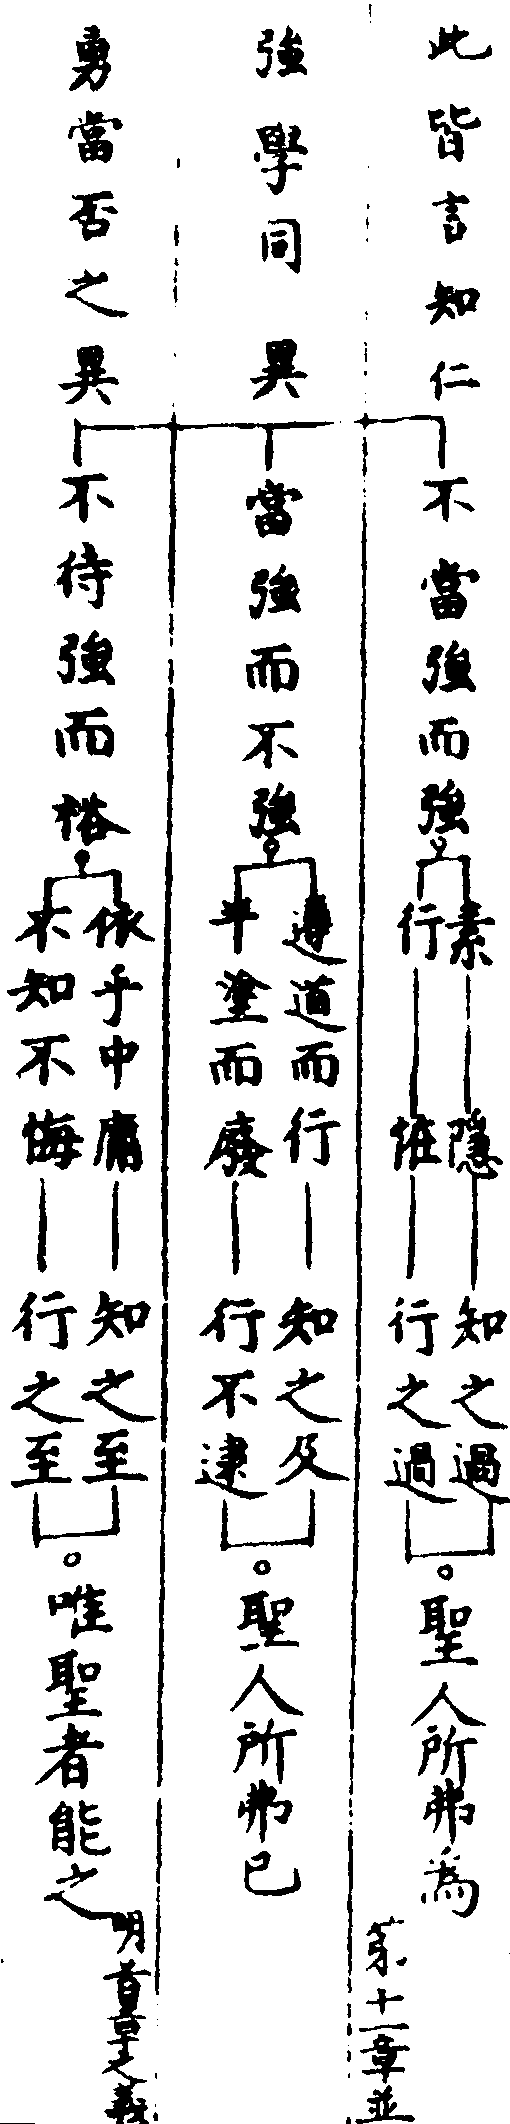 此皆言知仁
不當強而強
素隱
行恠
知之過
行之過
聖人所弗為
第十一章並
強學同異
當強而不強
遵道而行
半塗而廢
知之及
行不逮
聖人所弗已
勇當否之異
不待強而裕
依乎中庸
不知不悔
知之至
行之至
唯聖者能之
明首章之義